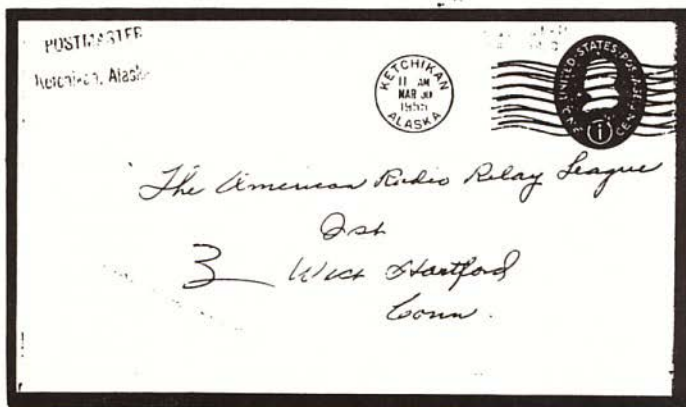 POSTMASTER
Ketchikan, Alaska
KETCHIKAN
11 AM
MAR 30
1955
ALASKA
UNITED STATES POSTAGE
1 CENT
The American Radio Relay League
West Hartford
3
Conn.